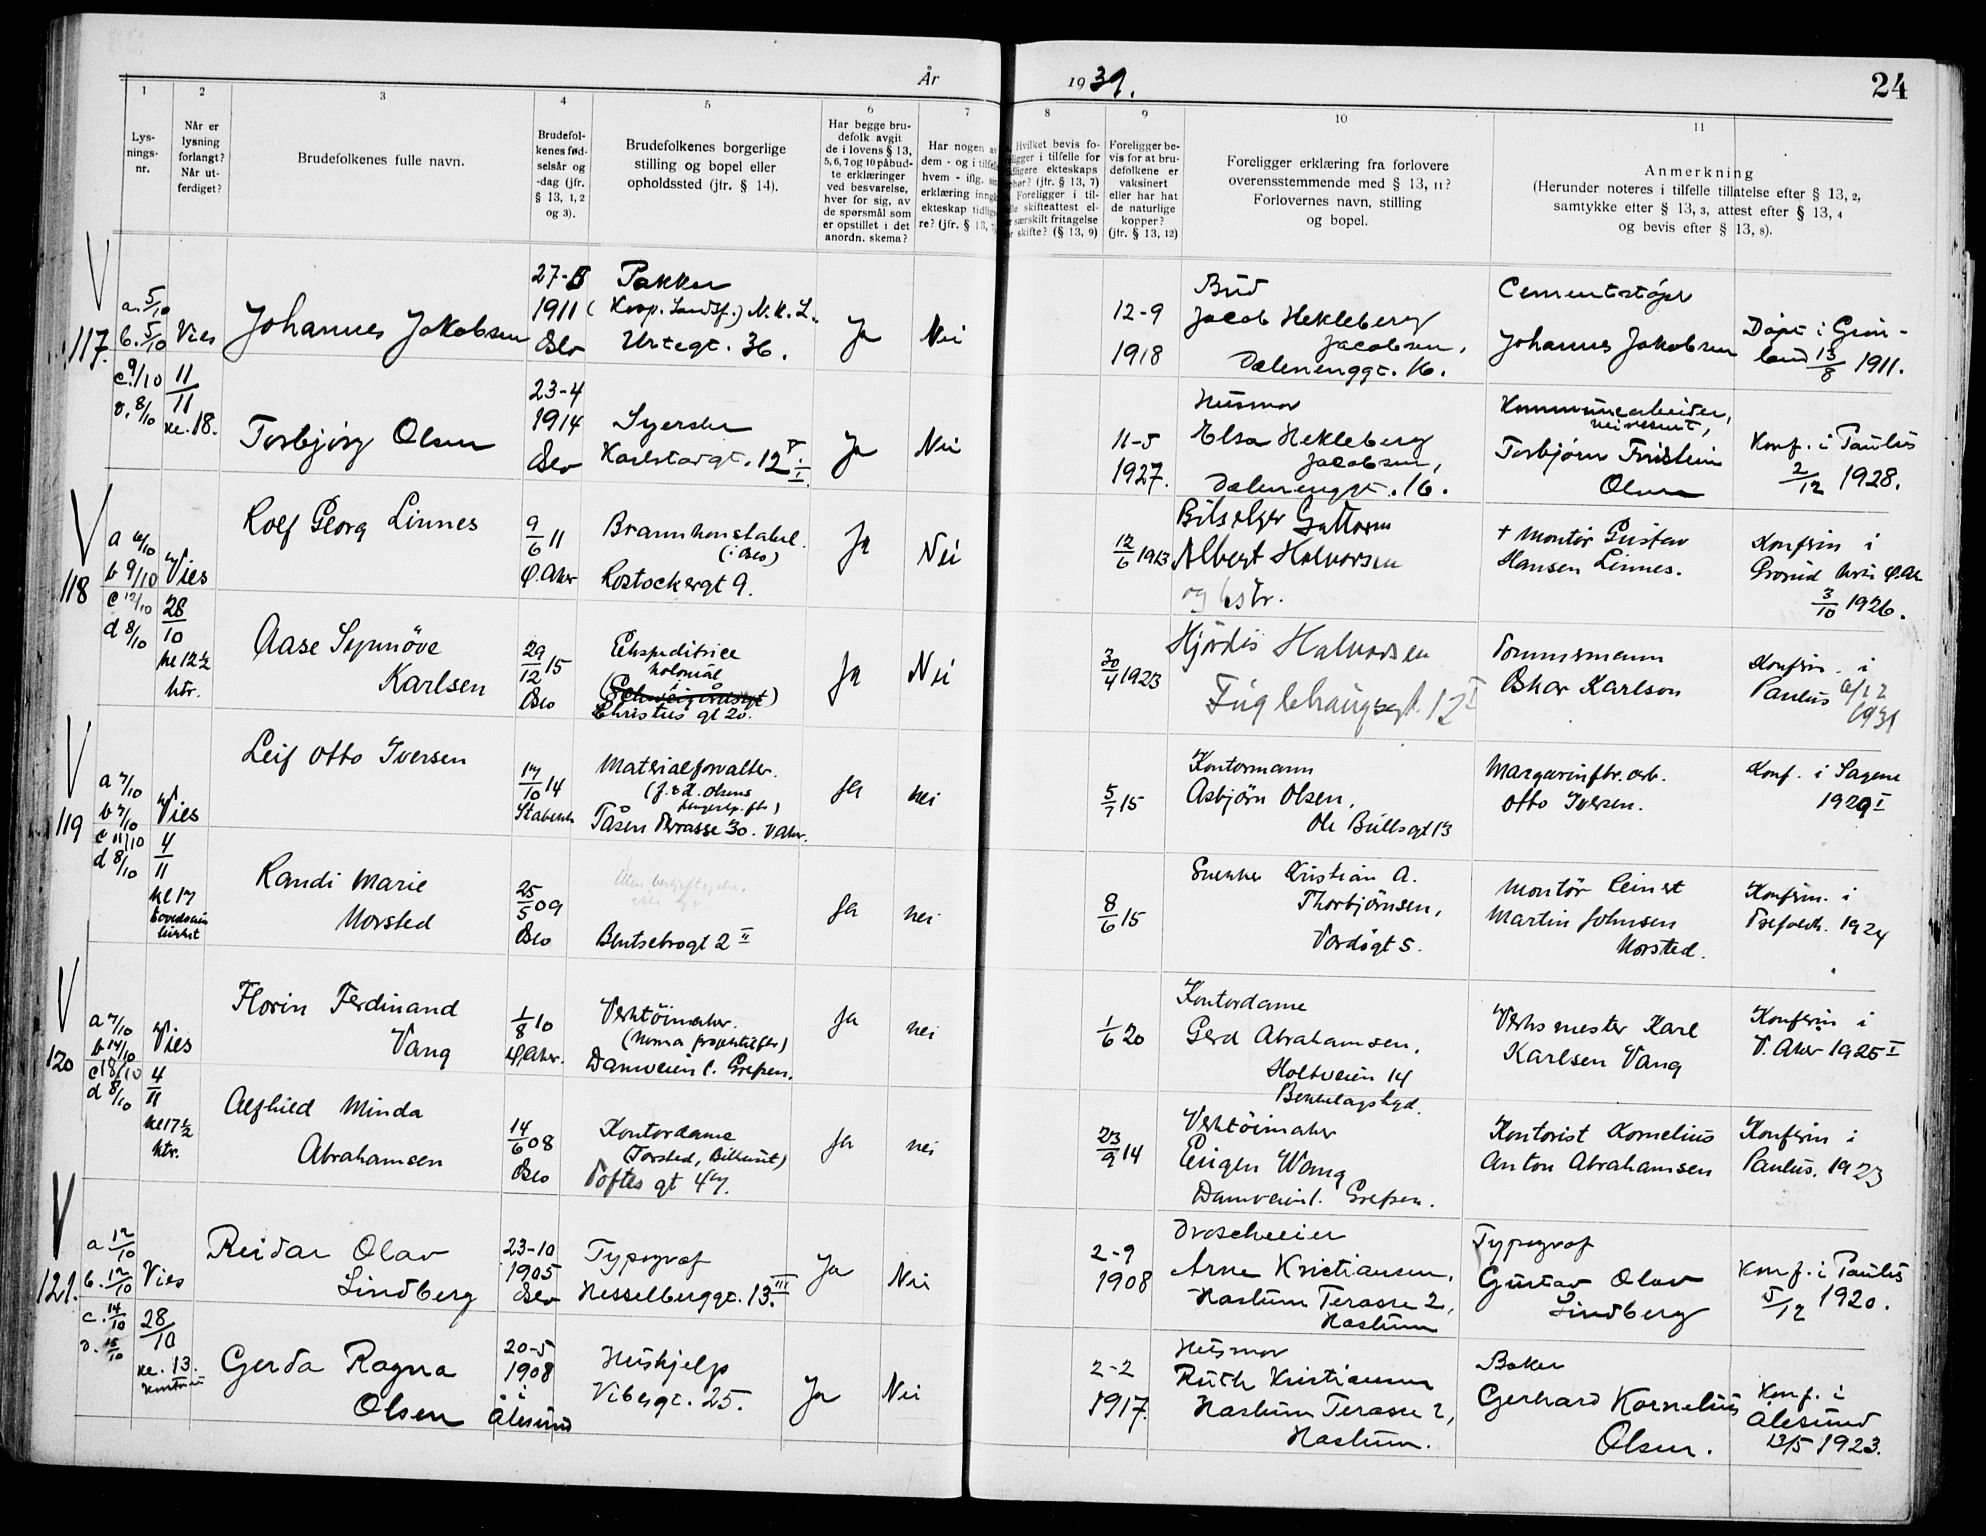 År 1939.
24
1
2
3
4
5
6
7
8
9
10
11
Lys-
nings-
nr.
Når er
lysning
forlangt?
Når ut-
ferdiget?
Brudefolkenes fulle navn.
Brudefol-
kenes fød-
selsår og
-dag (jfr.
§ 13, 1, 2
og 3).
Brudefolkenes borgerlige
stilling og bopel eller
opholdssted (jfr. § 14).
Har begge bru-
defolk avgit
de i lovens § 13,
5, 6, 7 og 10 påbud-
te erklæringer
ved besvarelse,
hver for sig, av
de spørsmål som
er opstillet i det
anordn. skema?
Har nogen av
dem - og i tilfelle
hvem - iflg.
erklæring inngått
ekteskap tidlige-
re? (jfr. § 13,
Hvilket bevis fo-
ligger i tilfelle for
tidligere ekteskaps
ophør? (jfr. § 13, 7)
Foreligger i til-
felle skifteattest el-
særskilt fritagelse
skifte? (§ 13, 9)
Foreligger be-
vis for at bru-
defolkene er
vaksinert
eller har hat
de naturlige
kopper?
(jfr. § 13, 12)
Foreligger erklæring fra forlovere
overensstemmende med § 13, 11?
Forlovernes navn, stilling
og bopel.
Anmerkning
(Herunder noteres i tilfelle tillatelse efter § 13, 2,
samtykke efter § 13, 3, attest efter § 13, 4
og bevis efter § 13, 8).
117.
a. 5/10
b. 5/10
c. 9/10
d. 8/10
Vies
11/11
kl. 18.
Johannes Jakobsen
27-
1911
Oslo
Pakker
(Koop. Landsf.) N.K.L.
Urtegt. 36.
Ja
Nei
12-9
1918
Bud
Jacob Hekleberg
Jacobsen,
Dælenenggt. 16.
Cementstøper
Johannes Jakobsen
Døpt i Grøn-
land 13/8 1911.
Torbjørg Olsen
23-4
1914
Oslo
Syerske
Karlstadgt. 12
Ja
Nei
11-5
1927.
Husmor
Elsa Hekleberg
Jacobsen,
Dælenenggt. 16.
Kommunearbeider,
Torbjørn Fristein
Olsen
Konf. i Paulus
2/12 1928.
118
a 6/10
b 9/10
c 12/10
d 8/10
Vies
28/10
kl 12½
ktr.
Rolf Georg Linnes
9/6 11
Ø. Aker
Brannkonstabel
(i Oslo)
Rostockergt 9.
Ja
Nei
12/6 1913
Bilselger Guttorm
Albert Halvorsen
og hstr.
+ montör Gustav
Hansen Linnes.
Konfirm i
Grorud Ø.Ak
3/10 1926.
Aase Synnöve
Karlsen
29/12 15
Oslo
Ekspeditrice
kolonial
Christies gt 20.
Ja
Nei
30/4 1923
Hjördis Halvorsen
Fuglehauggt. 12 I
Tømmermann
Oskar Karlson
Konfirm. i
Paulus 6/12
1931
119
a 7/10
b 7/10
c 11/10
d 8/10
Vies
4/11
kl 17
Leif Otto Iversen
17/10 14
Stabekk
Materialforvalter.
Tåsen Terrasse 30. V Aker.
Ja
nei
5/7 15
Kontormann
Asbjörn Olsen,
Ole Bullsgt 13
Margarinfbr. arb.
Otto Iversen.
Konf. i Sagene
1929 I
Randi Marie
Norsted
25/5 09
Oslo
Bentsebrogt 2 II
Ja
nei
8/6 15
Snekker Kristian A.
Thorbjörnsen,
Vardögt 5.
Montör Einert
Martin Johnsen
Norsted.
Konfirm. i
Trefoldh. 1924
120
a 7/10
b 14/10
c 18/10
d 8/10
Vies
4/11
kl 17½
ktr.
Florin Ferdinand
Vang
1/8 10
Ø. Aker.
Verktöimaker.
(Norma projektilfbr)
Damveien 1. Grefsen.
Ja
nei
1/6 20
Kontordame
Gerd Abrahamsen,
Holtveien 14
Bekkelagshgd.
Verksmester Karl
Karlsen Vang
Konfirm i
V. Aker 1925 I
Alfhild Minda
Abrahamsen
14/6 08
Oslo
Kontordame
(Torsted, Bilhuset)
Toftes gt 47.
Ja
nei
23/9 14
Verktöimaker
Eugen Wang
Damveien 1. Grefsen.
Kontorist Kornelius
Anton Abrahamsen
Konfirm i
Paulus. 1923
121.
a 12/10
b. 12/10
c. 14/10
Vies
28/10
kl. 13.
Reidar Olav
Lindberg
23-10
1905
Oslo
Typograf
Hesselberggt. 13. III
Ja
Nei
2-9
1908
Droscheeier
Arne Kristiansen,
Haslum Terasse 2,
Haslum
Typograf
Gustav Olav
Lindberg
Konf. i Paulus
5/12 1920.
Gerda Ragna
Olsen
20-5
1908
i
Ålesund
Hushjelp
Vibesgt. 25.
Ja
Nei
2-2
1917.
Husmor
Ruth Kristiansen
Haslum Terasse 2,
Haslum.
Baker
Gerhard Kornelius
Olsen.
Konf. i
Ålesund
13/5 1923.